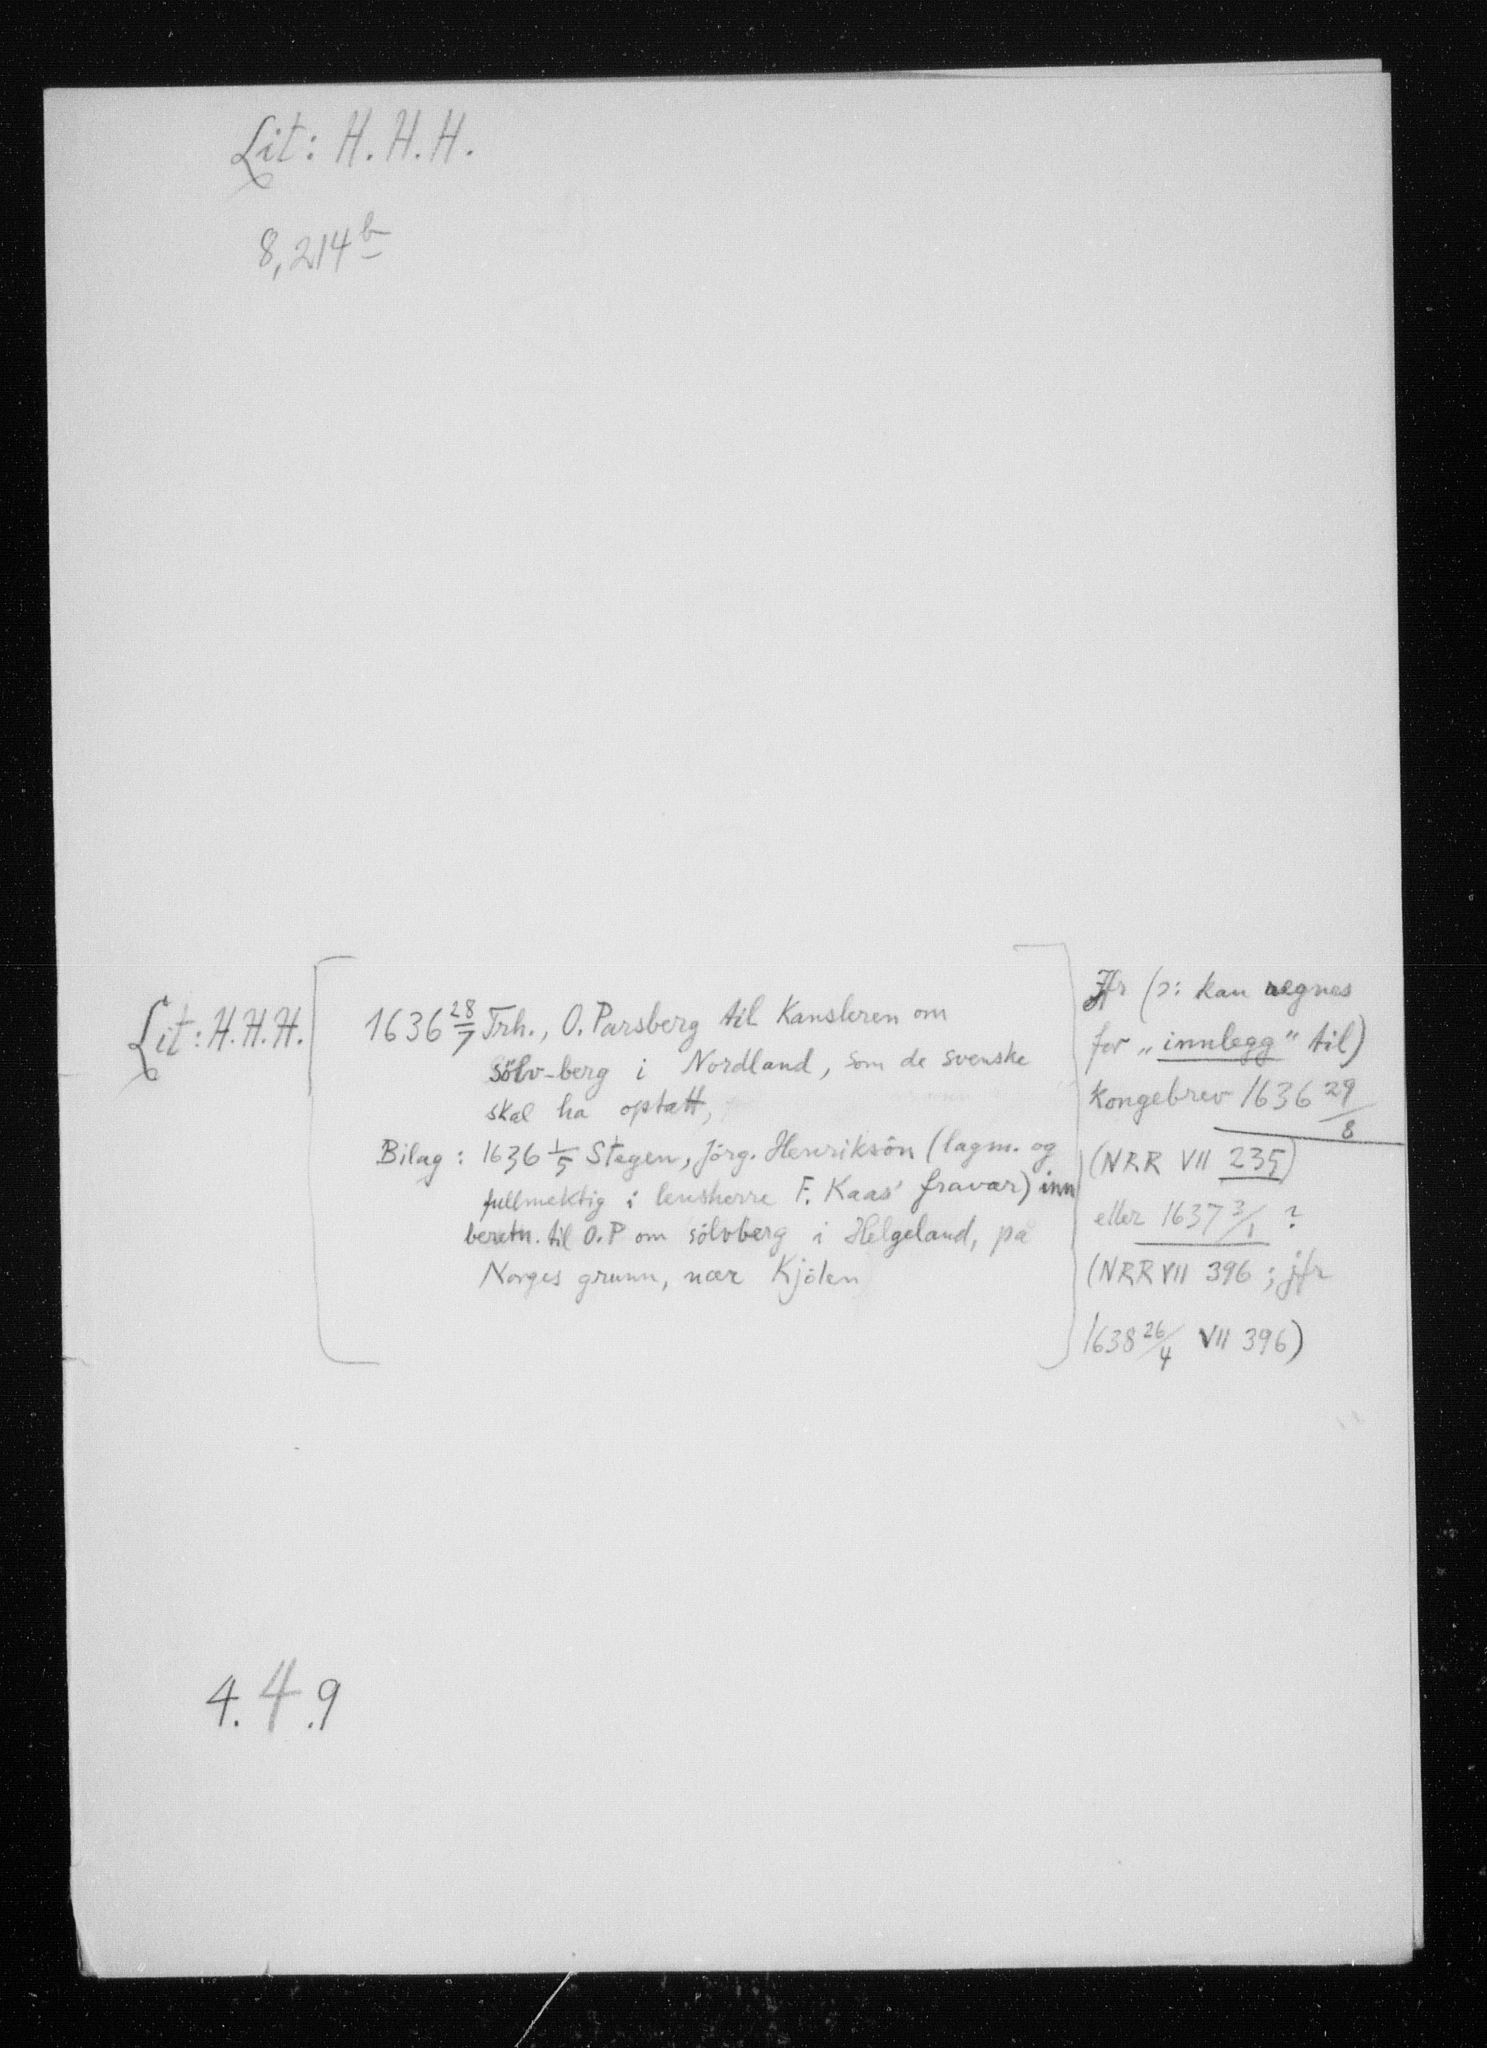 Lit: H.H.H.
8,214 b
Lit: H.H.H.
1636 28/7 Trh., O. Parsberg til Kansleren om
sölv-berg i Nordland, som de svenske
skal ha optatt,
Bilag: 1636 1/5 Stegen, Jörg. Henriksön (lagm. og
fullmektig i lensherre F. Kaas' fravær) inn
beretn. til O.P om sölvberg i Helgeland, på
Norges grunn, nær Kjölen
Jfr (ɔ: kan regnes
for „innlegg" til)
Kongebrev 1636 29/8
(NRR VII 235)
eller 1637 3/1 ?
(NRR VII 396; jfr
1638 26/4 VII 396)
4.4.9